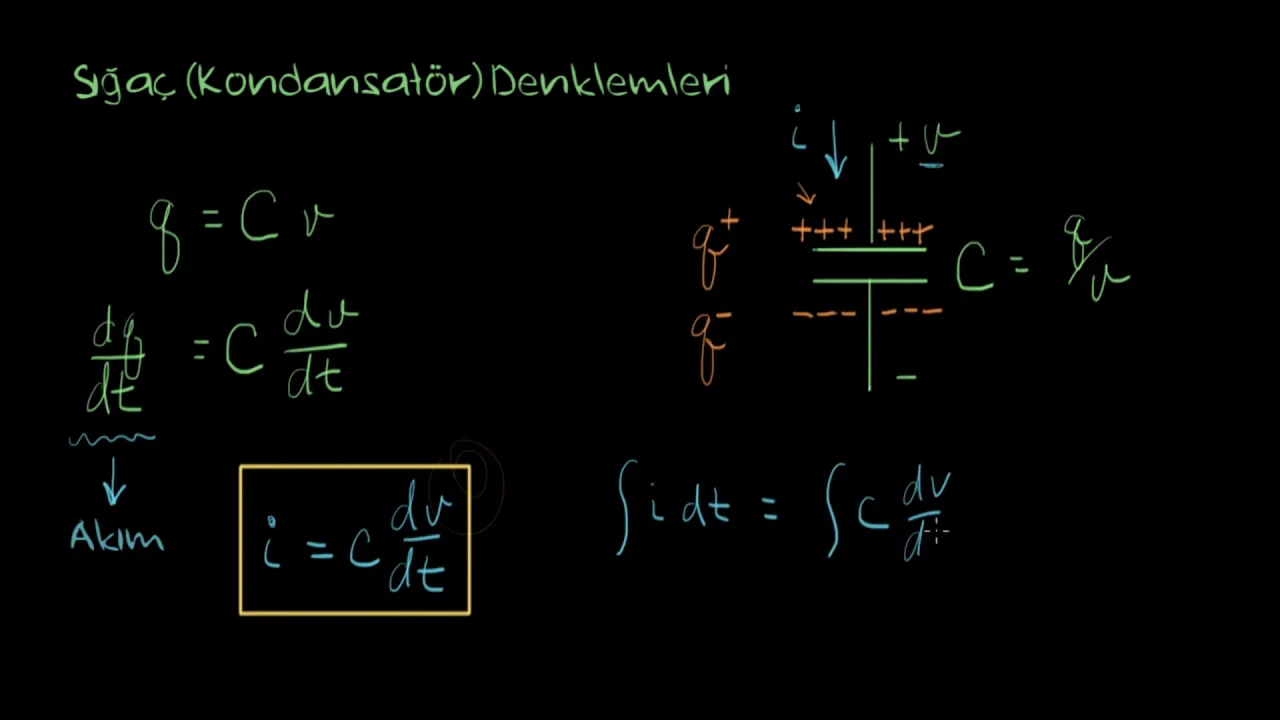 Sığaç (Kondansatör) Denklemleri
q = C v
dq/dt = C dv/dt
Akım
i = C dv/dt
i
+ v
q+ +++ +++
C = q/v
q- --- ---
-
∫ i dt = ∫ C dv/d